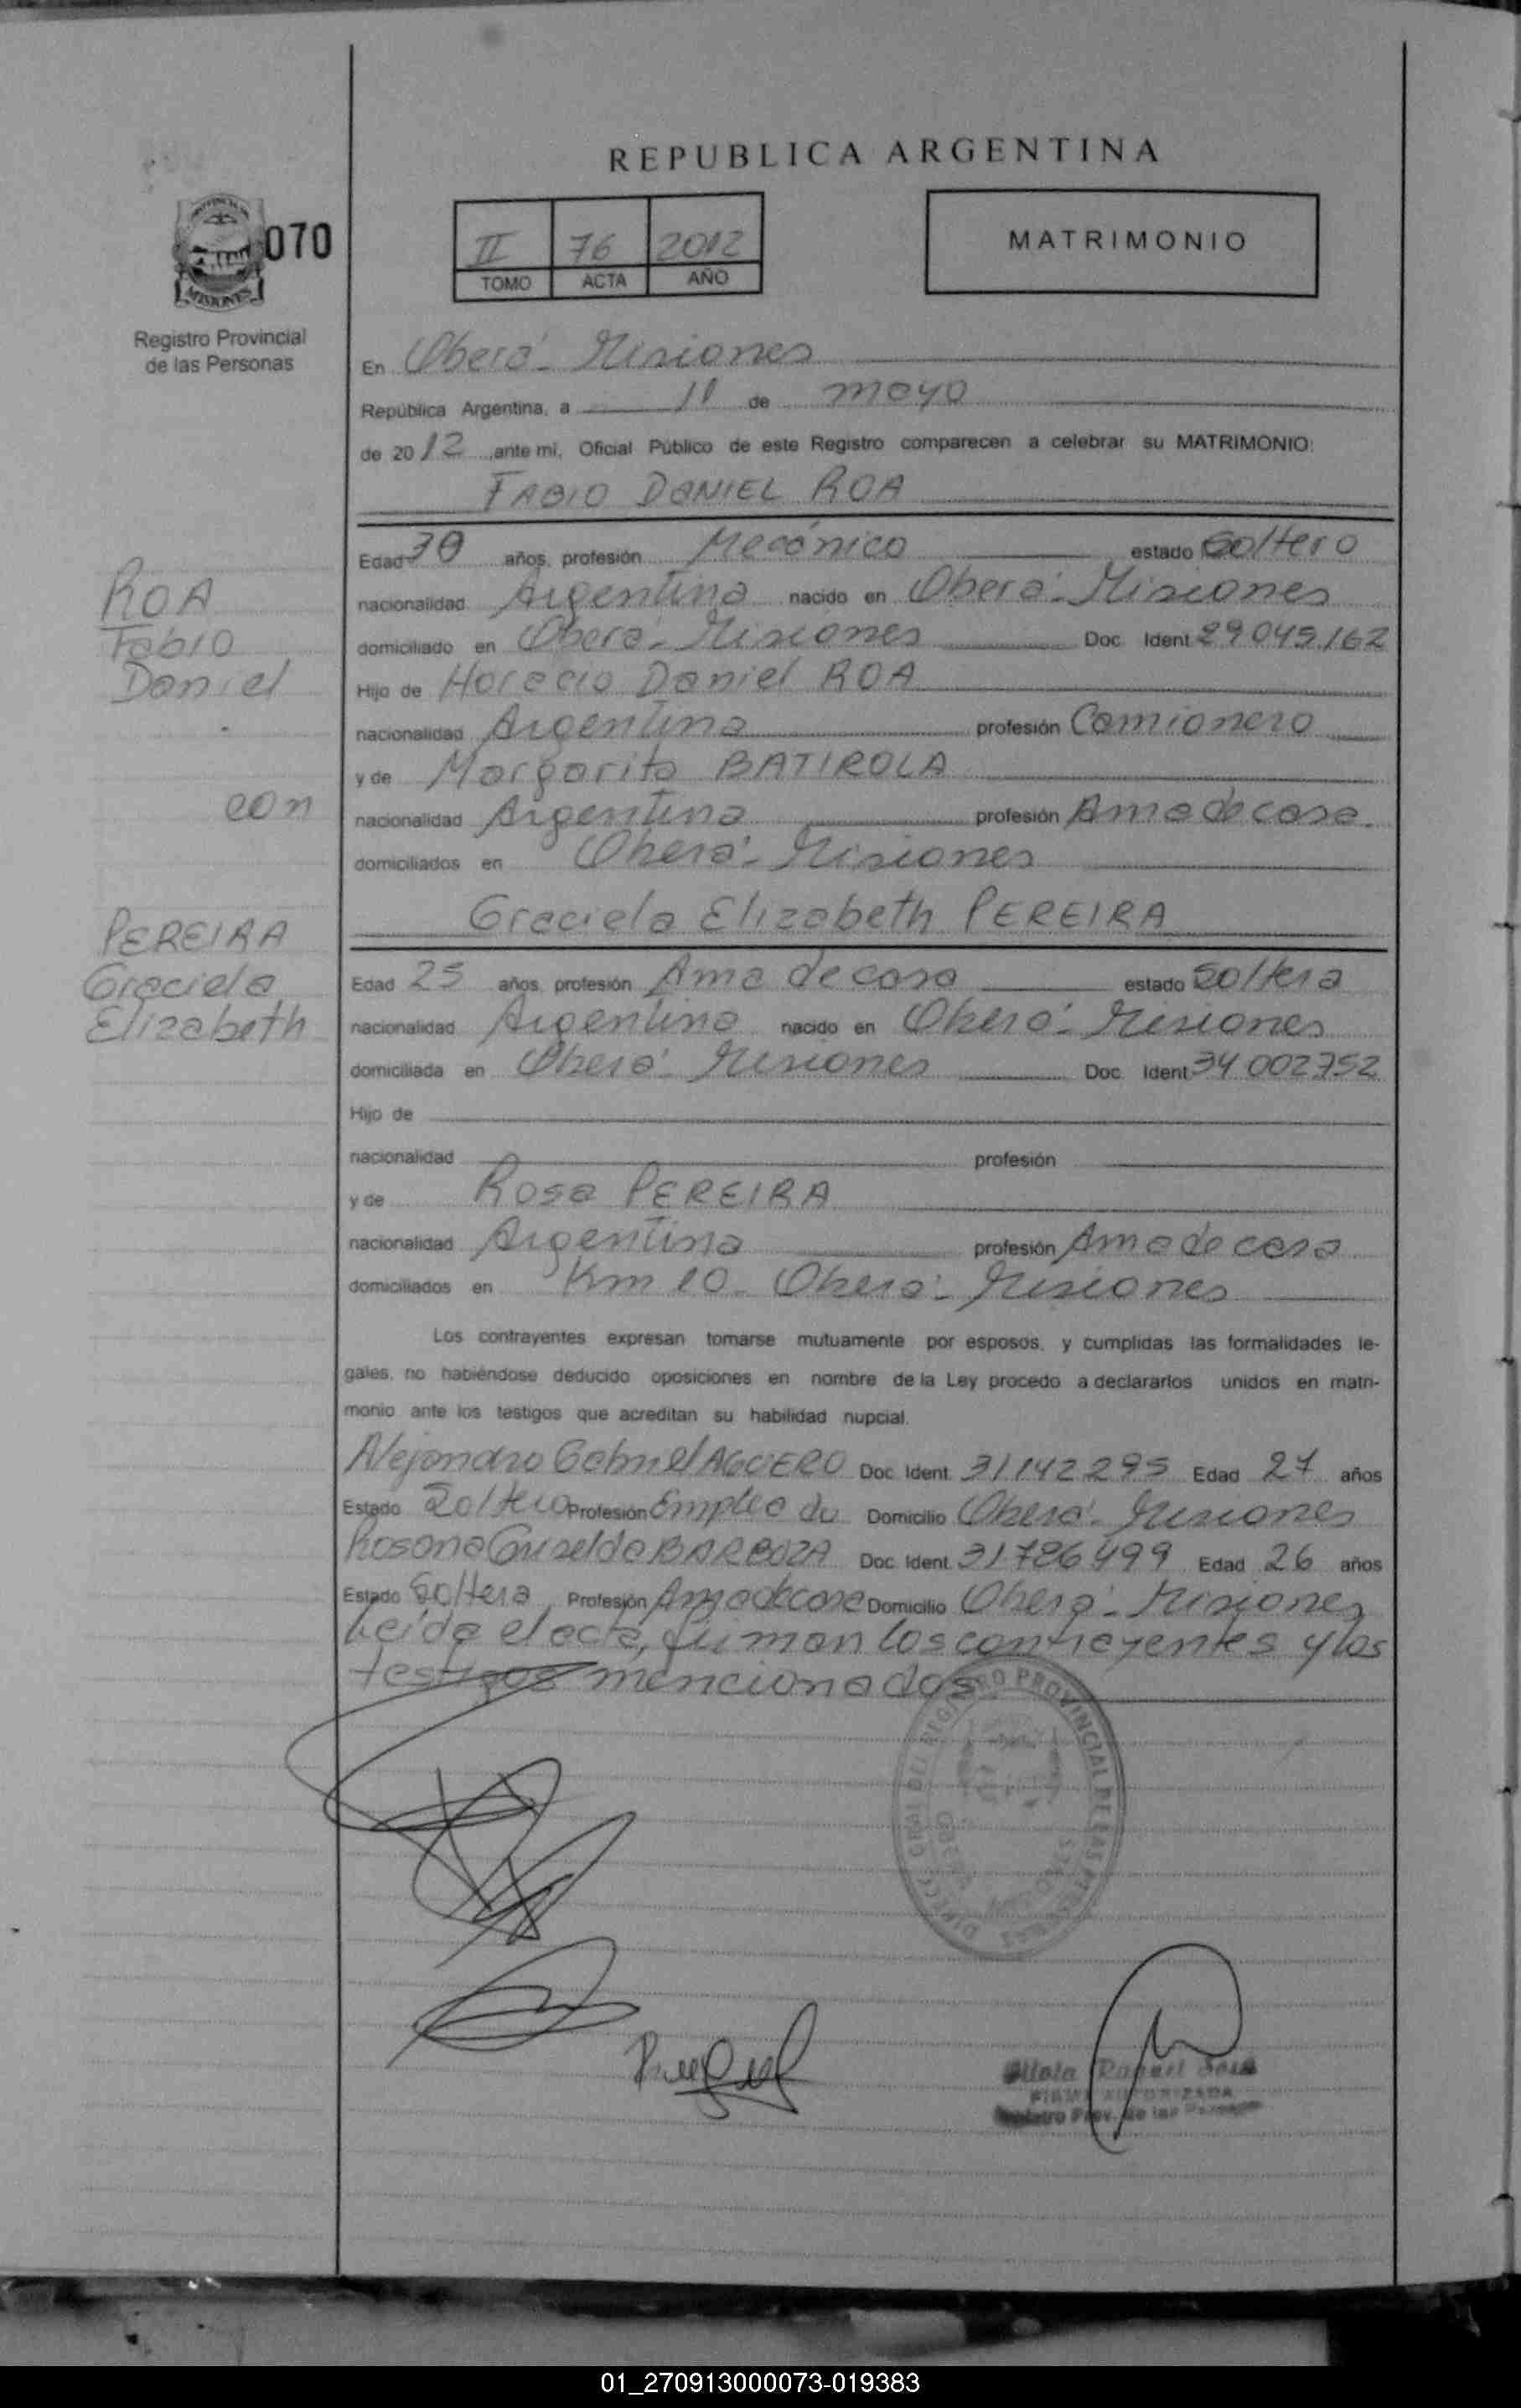 REPUBLICA ARGENTINA
070
II 76 2012
TOMO ACTA AÑO
MATRIMONIO
MISIONES
Registro Provincial
de las Personas
En Oberá - Misiones
República Argentina, a 11 de mayo
de 2012 ,ante mi, Oficial Público de este Registro comparecen a celebrar su MATRIMONIO:
FABIO DANIEL ROA
Edad 30 años, profesión Mecánico estado Soltero
nacionalidad Argentina nacido en Oberá - Misiones
domiciliado en Oberá - Misiones Doc. Ident. 29.045.162
Hijo de Horacio Daniel ROA
nacionalidad Argentina profesión Camionero
y de Margarita BATIROLA
nacionalidad Argentina profesión Ama de casa.
domiciliados en Oberá - Misiones
ROA
Fabio
Daniel
con
PEREIRA
Graciela
Elizabeth
Graciela Elizabeth PEREIRA
Edad 25 años, profesión Ama de casa estado Soltera
nacionalidad Argentina nacido en Oberá - Misiones
domiciliada en Oberá - Misiones Doc. Ident. 34 002752
Hijo de
nacionalidad profesión
y de Rosa PEREIRA
nacionalidad Argentina profesión Ama de casa
domiciliados en Km 10 - Oberá - Misiones
Los contrayentes expresan tomarse mutuamente por esposos, y cumplidas las formalidades le-
gales, no habiéndose deducido oposiciones en nombre de la Ley procedo a declararlos unidos en matri-
monio ante los testigos que acreditan su habilidad nupcial.
Alejandro Gabriel AGUERO Doc. Ident. 31142295 Edad 27 años
Estado Soltero Profesión Empleado Domicilio Oberá - Misiones
Rosana Griselda BARBOZA Doc. Ident. 31786499 Edad 26 años
Estado Soltera Profesión Ama de casa Domicilio Oberá - Misiones
Leída el acta, firman los contrayentes y los
testigos mencionados
DIRECC. GRAL DEL REGISTRO PROVINCIAL DE LAS PERSONAS
Rafael José
FIRMA AUTORIZADA
Registro Prov. de las Personas
01_270913000073-019383